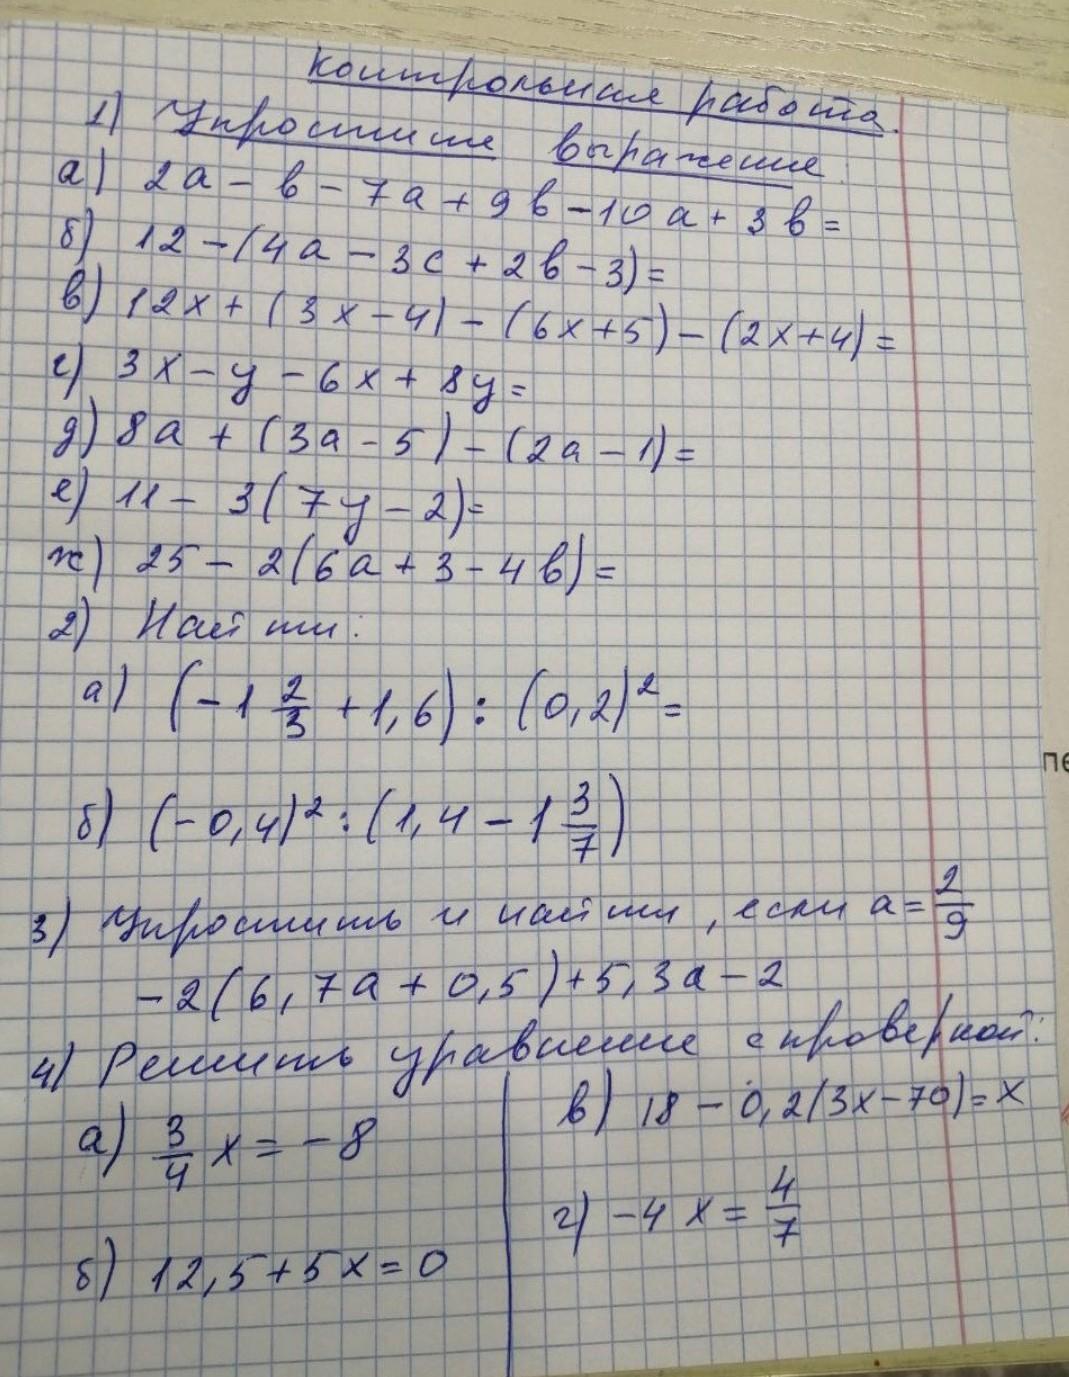 Контрольная работа.
1) Упростите выражение:
а) 2а - в - 7а + 9в - 10а + 3в =
б) 12 - (4а - 3с + 2в - 3) =
в) 12х + (3х - 4) - (6х + 5) - (2х + 4) =
г) 3х - у - 6х + 8у =
д) 8а + (3а - 5) - (2а - 1) =
е) 11 - 3(7у - 2) =
ж) 25 - 2(6а + 3 - 4в) =
2) Найти:
а) (-1 2/3 + 1,6) : (0,2)² =
б) (-0,4)² : (1,4 - 1 3/7)
3) Упростить и найти, если а = 2/9
-2(6,7а + 0,5) + 5,3а - 2
4) Решить уравнение с проверкой:
а) 3/4 х = -8
б) 12,5 + 5х = 0
в) 18 - 0,2(3х - 70) = х
г) -4х = 4/7